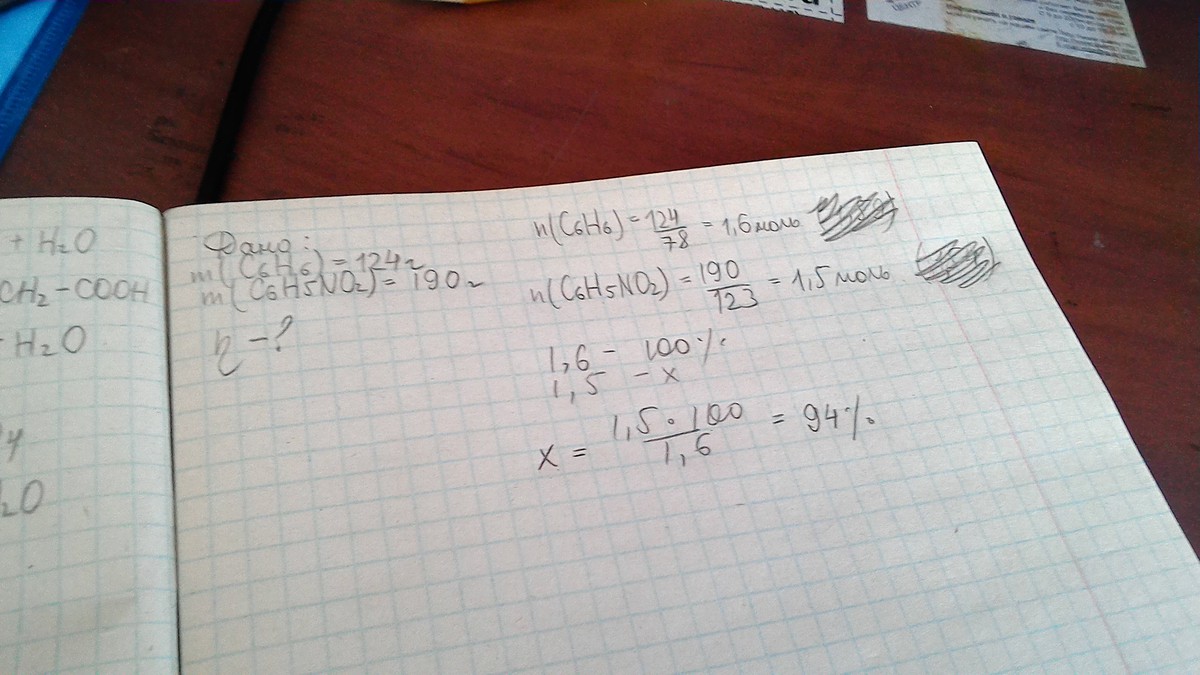 + H₂O
CH₂ – COOH
H₂O
₂O
Дано:
m(C₆H₆) = 124г
m(C₆H₅NO₂) = 190г
η – ?
n(C₆H₆) = 124/78 = 1,6 моль
n(C₆H₅NO₂) = 190/123 = 1,5 моль
1,6 – 100%
1,5 – x
x = 1,5 · 100/1,6 = 94%